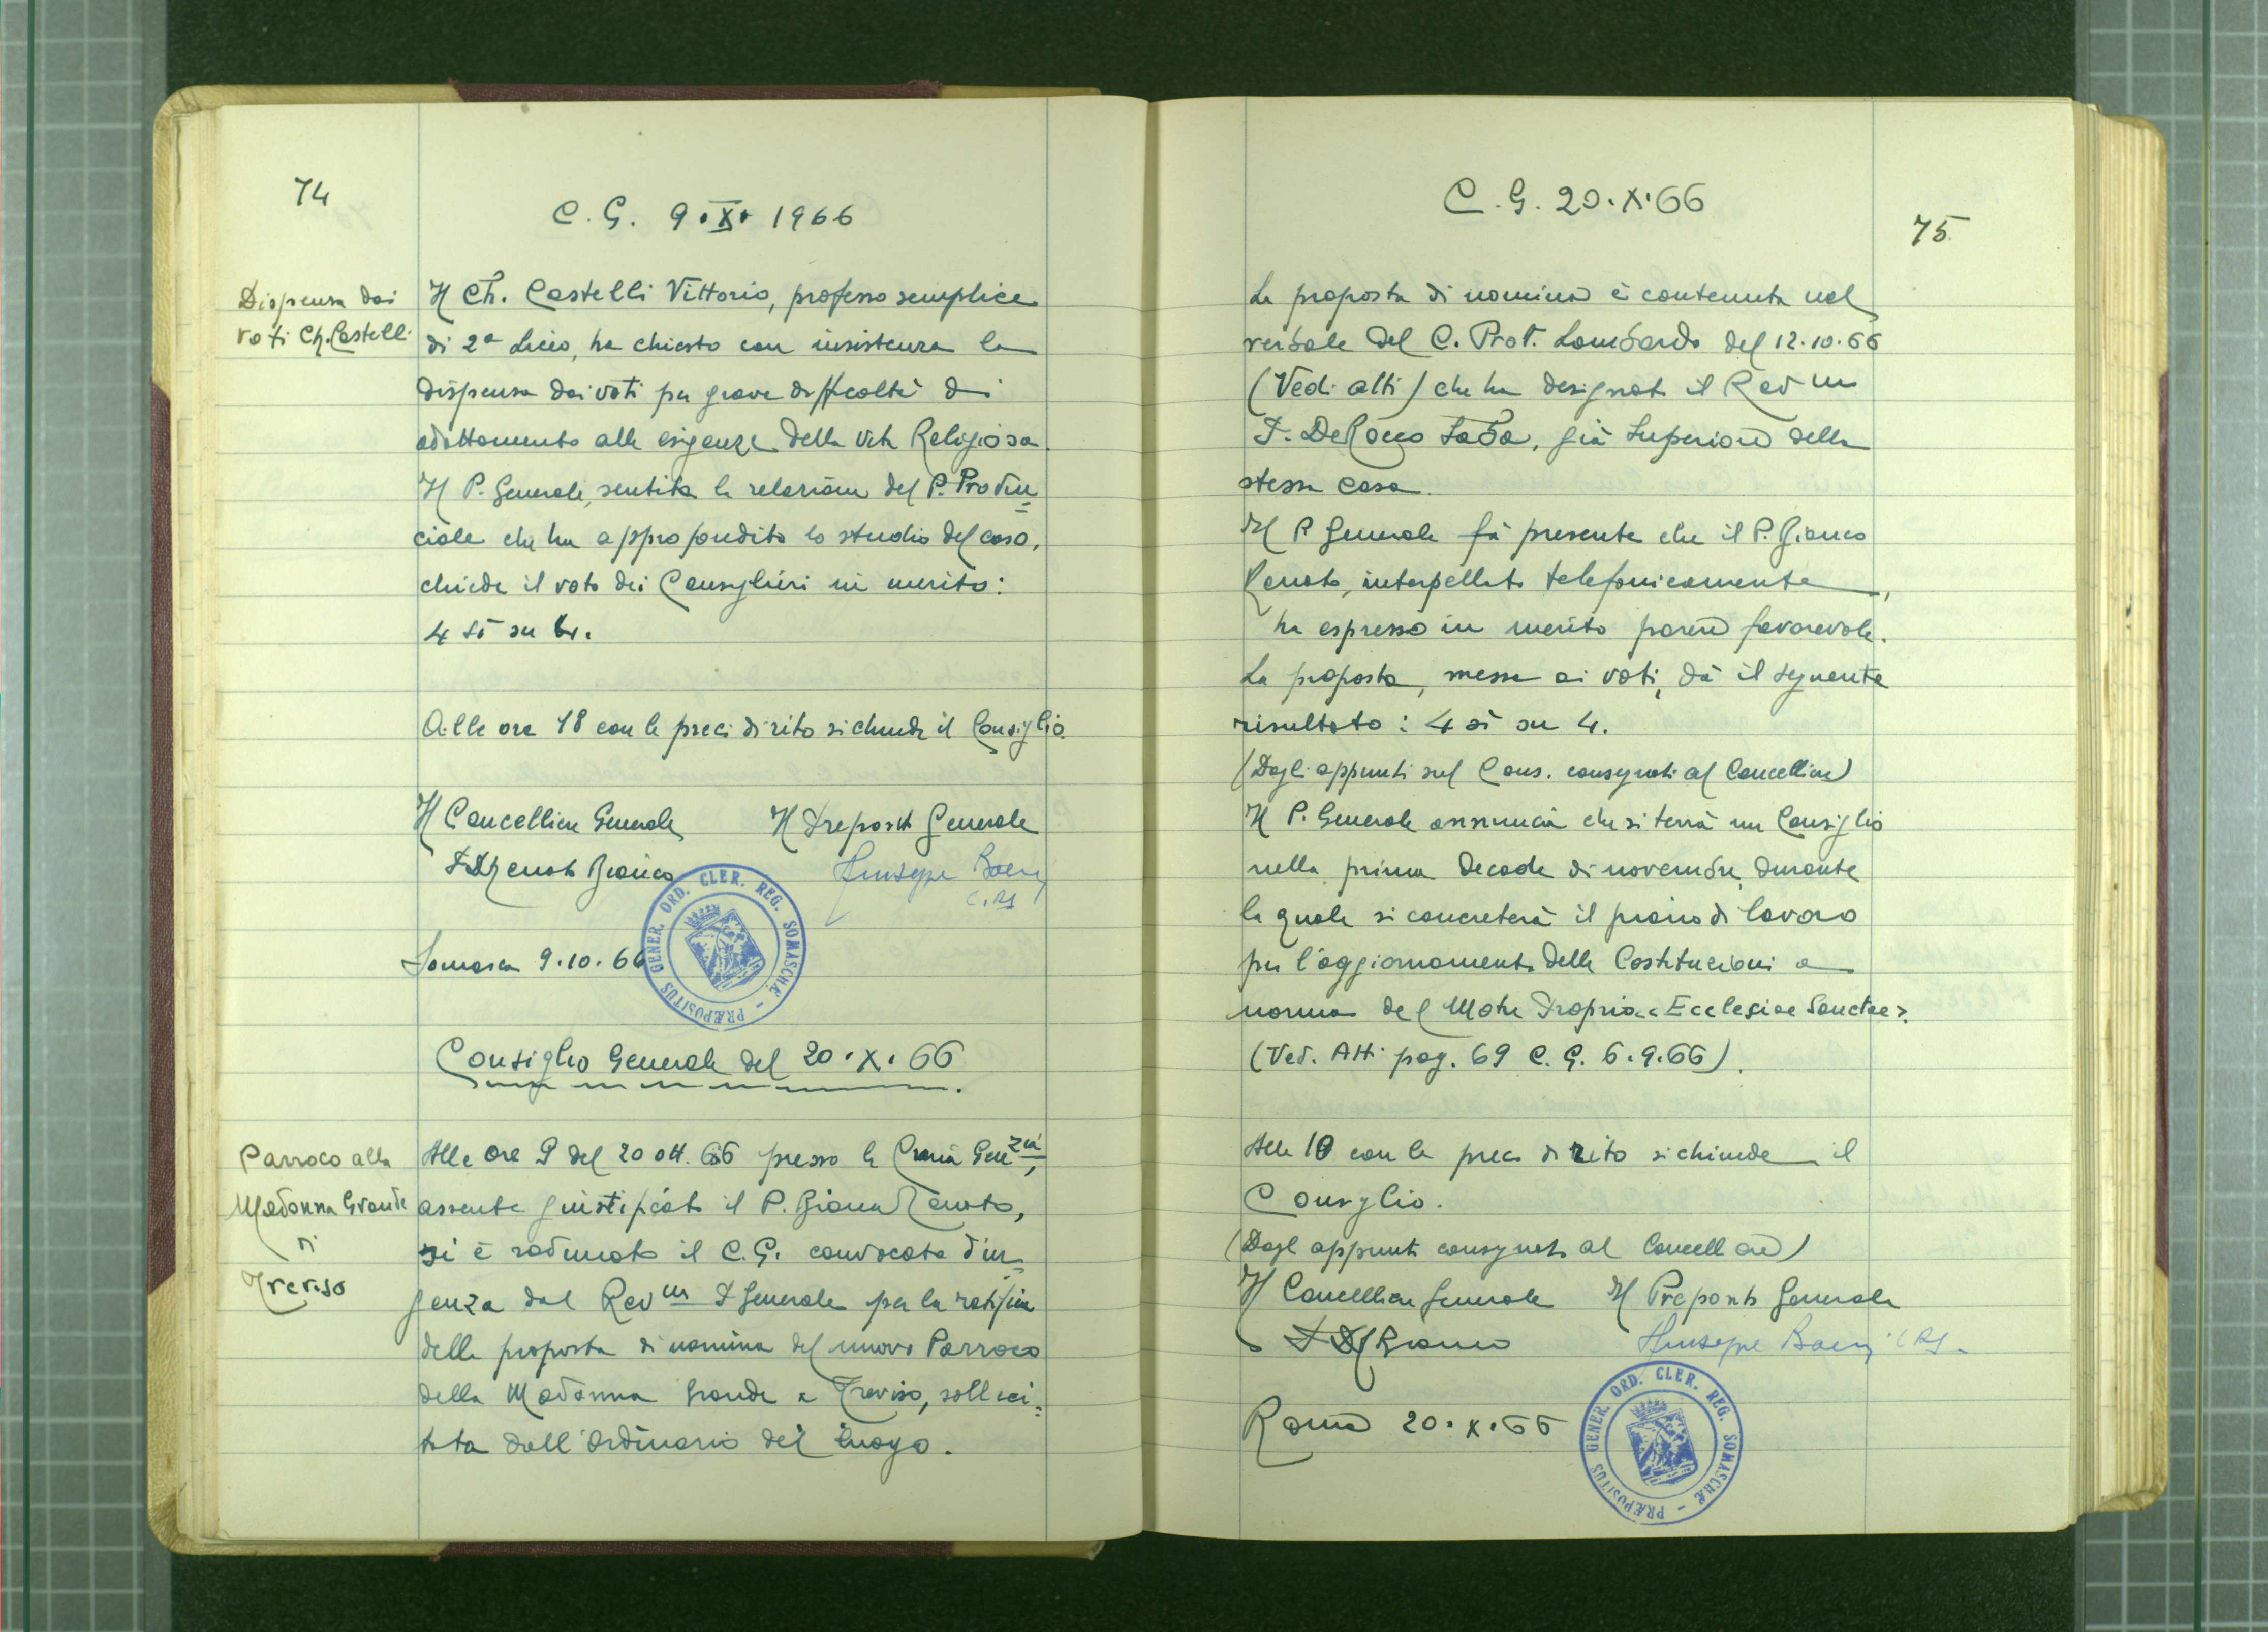 74
C. G. 9.X.1966
Dispensa dai
voti Ch. Castelli
Il Ch. Castelli Vittorio, professo semplice
di 2ª Liceo, ha chiesto con insistenza la
dispensa dai voti per grave difficoltà di
adattamento alle esigenze della vita Religiosa.
Il P. Generale, sentita la relazione del P. Provin=
ciale che ha approfondito lo studio del caso,
chiede il voto dei Consiglieri in merito:
4 sì su 4.
Alle ore 18 con le preci di rito si chiude il Consiglio.
Il Cancelliere Generale Il Preposito Generale
P. Renato Bianco Giuseppe Boeri
C.R.S.
Somasca 9.10.66
PRÆPOSITUS GENER. ORD. CLER. REG. SOMASCHÆ
Consiglio Generale del 20.X.66
Parroco alla
Madonna Grande
di
Treviso
Alle ore 9 del 20 ott. 66 presso la Curia Gen.zia,
assente giustificato il P. Bianco Renato,
si è radunato il C.G. convocato d'ur
genza dal Rev.m P. Generale per la ratifica
della proposta di nomina del nuovo Parroco
della Madonna Grande a Treviso, solleci=
tata dall'Ordinario del luogo.
C. G. 20.X.66
75
La proposta di nomina è contenuta nel
verbale del C. Prov. Lombardo del 12.10.66
(Vedi atti) che ha designato il Rev.m
P. De Rocco Saba, già Superiore della
stessa casa.
Il P. Generale fà presente che il P. Bianco
Renato, interpellato telefonicamente,
ha espresso in merito parere favorevole.
La proposta, messa ai voti, dà il seguente
risultato: 4 sì su 4.
(Dagli appunti sul Cons. consegnati al Cancelliere)
Il P. Generale annuncia che si terrà un Consiglio
nella prima decade di novembre, durante
la quale si concreterà il piano di lavoro
per l'aggiornamento delle Costituzioni a
norma del Motu Proprio «Ecclesiae Sanctae».
(Ved. Atti pag. 69 C. G. 6.9.66).
Alle 10 con le preci di rito si chiude il
Consiglio.
(Dagl appunti consegnati al Cancelliere)
Il Cancelliere Generale Il Preposito Generale
P. R. Bianco Giuseppe Boeri CRS.
Roma 20.X.66
PRÆPOSITUS GENER. ORD. CLER. REG. SOMASCHÆ